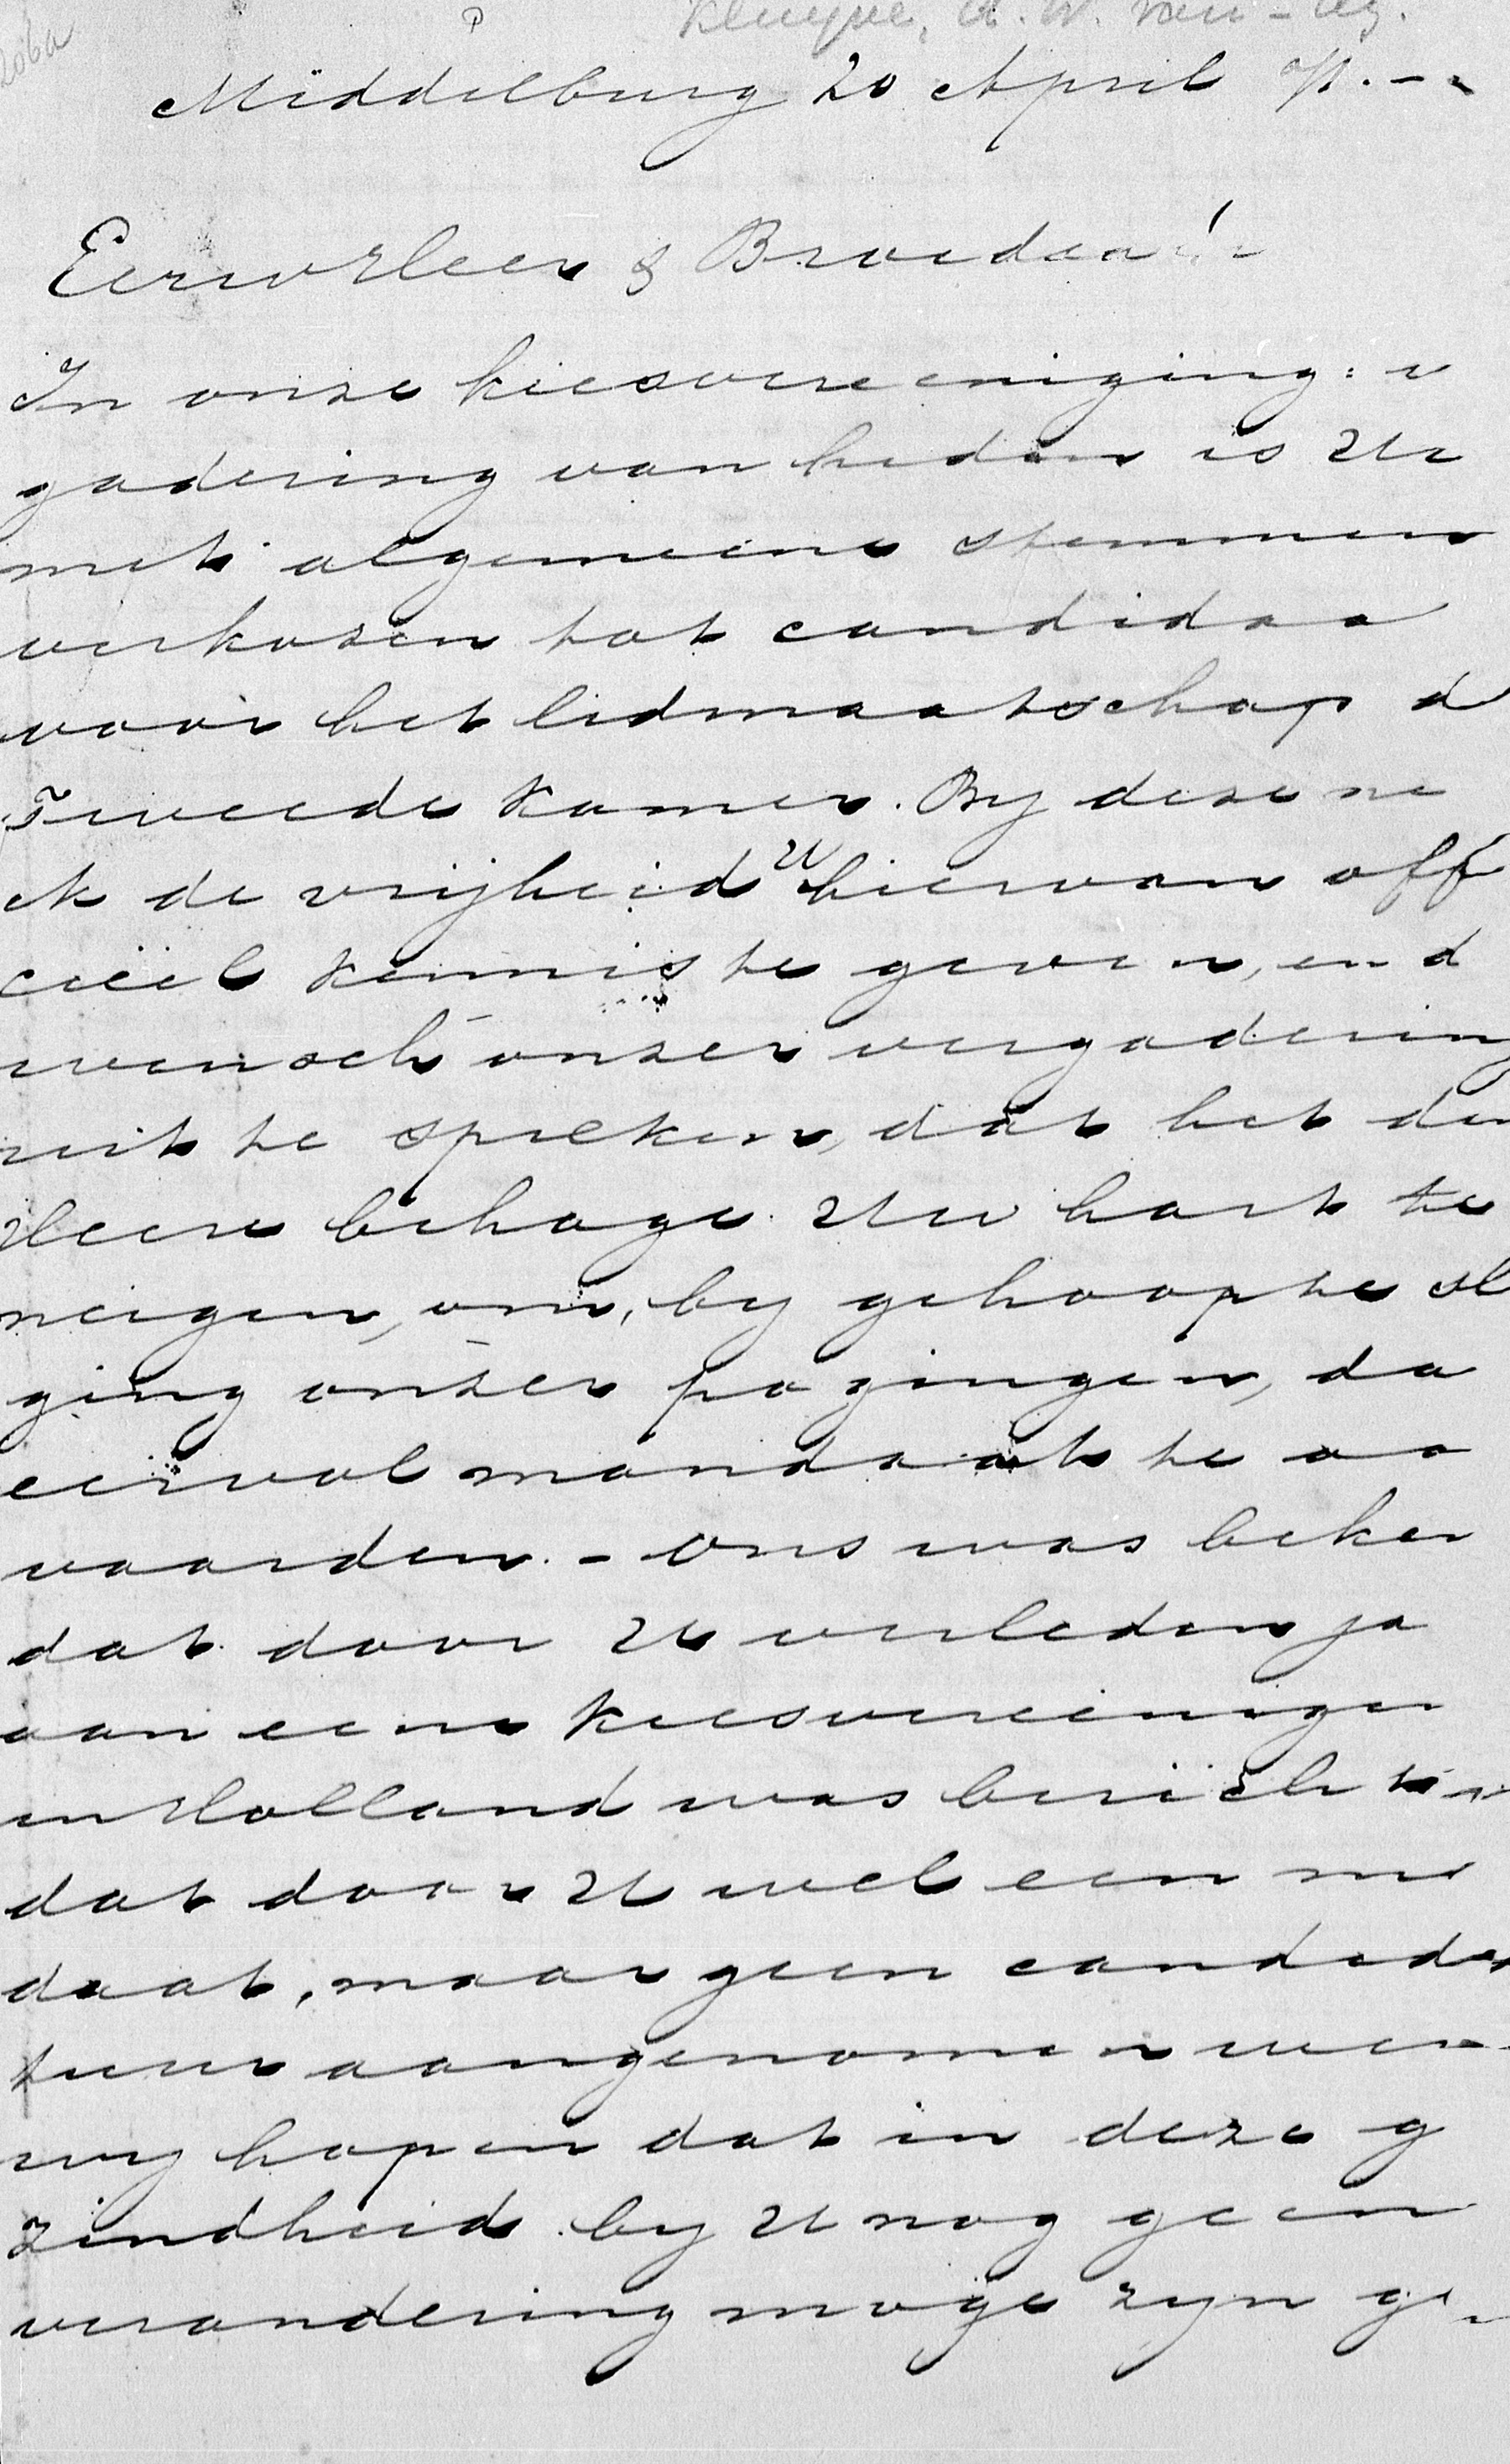 Middelburg 20 April 71. -
Eerw Heer & Broeder!
In onze kiesvereeniging: v
gadering van heden is Uw
met algemeene stemmen
verkozen tot candidaa
voor het lidmaatschap d
Tweede Kamer. By deze ne
ik de vrijheid U hiervan offi
cieël kennis te geven, en d
wensch onzer vergadering
uit te spreken, dat het den
Heere behage Uw hart te
neigen, om, by gehoopte sl
ging onzer pogingen, da
eervol mandaat te aa
vaarden. - Ons was beken
dat door U verleden ja
aan eene kiesvereenigin
in Holland was bericht
dat door U wel een ma
daat, maar geen candida
tuur aangenomen wer
wy hopen dat in deze g
zindheid by U nog geen
verandering moge zyn ge